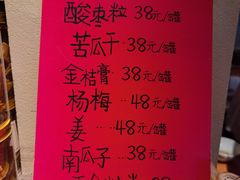 酸枣粒 38元/罐
苦瓜干 38元/罐
金桔膏 38元/罐
杨梅 48元/罐
姜 48元/罐
南瓜子 38元/罐